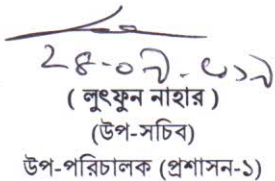 ( লুৎফুন নাহার )
(উপ-সচিব)
উপ-পরিচালক (প্রশাসন-১)